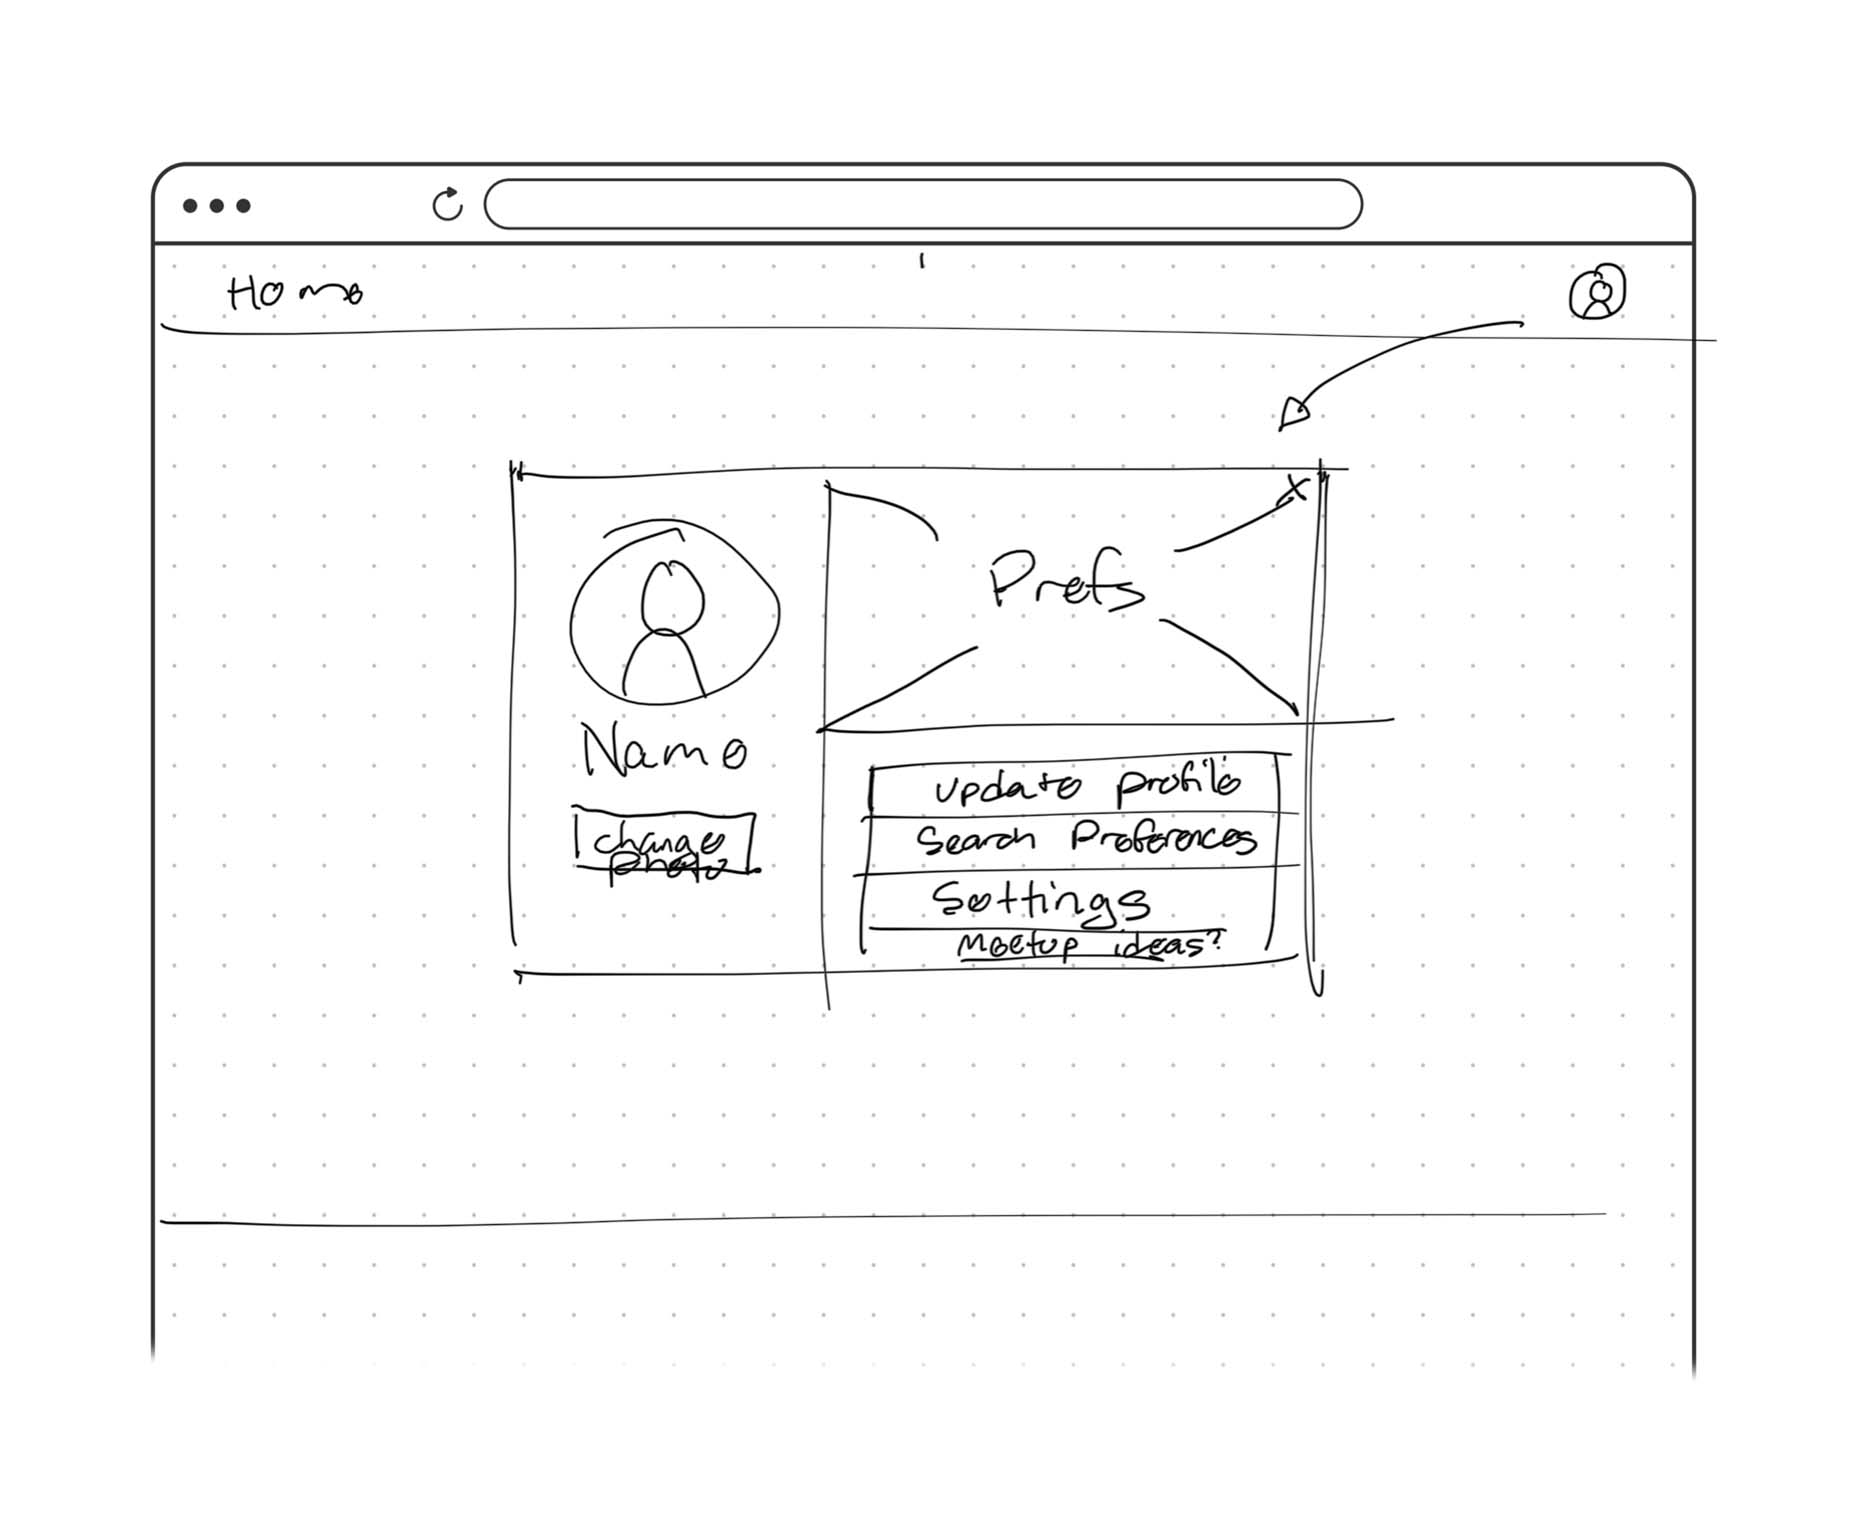 Home
x
Prefs
Name
change
photo
update profile
Search Preferences
Settings
Meetup ideas?